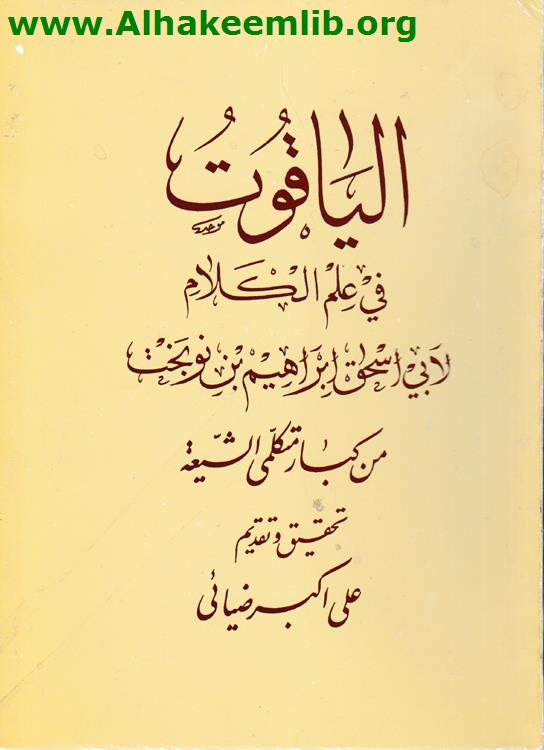 www.Alhakeemlib.org
الياقوت
في علم الكلام
لأبي اسحق ابراهيم بن نوبخت
من كبار متكلمى الشيعة
تحقيق وتقديم
على اكبر ضيائى